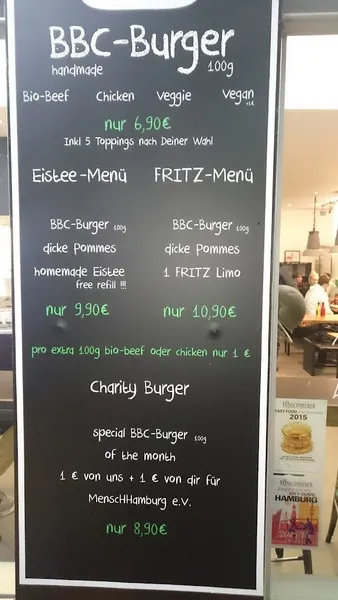 BBC-Burger
handmade 100g
Bio-Beef Chicken Veggie Vegan
+1€
nur 6,90€
Inkl 5 Toppings nach Deiner Wahl
Eistee-Menü FRITZ-Menü
BBC-Burger 100g BBC-Burger 100g
dicke Pommes dicke Pommes
homemade Eistee 1 FRITZ Limo
free refill !!!
nur 9,90€ nur 10,90€
pro extra 100g bio-beef oder chicken nur 1 €
Charity Burger
special BBC-Burger 100g
of the month
1 € von uns + 1 € von dir für
MenscHHamburg e.V.
nur 8,90€
DER FEINSCHMECKER
2015
DER FEINSCHMECKER
CITY GUIDE
HAMBURG